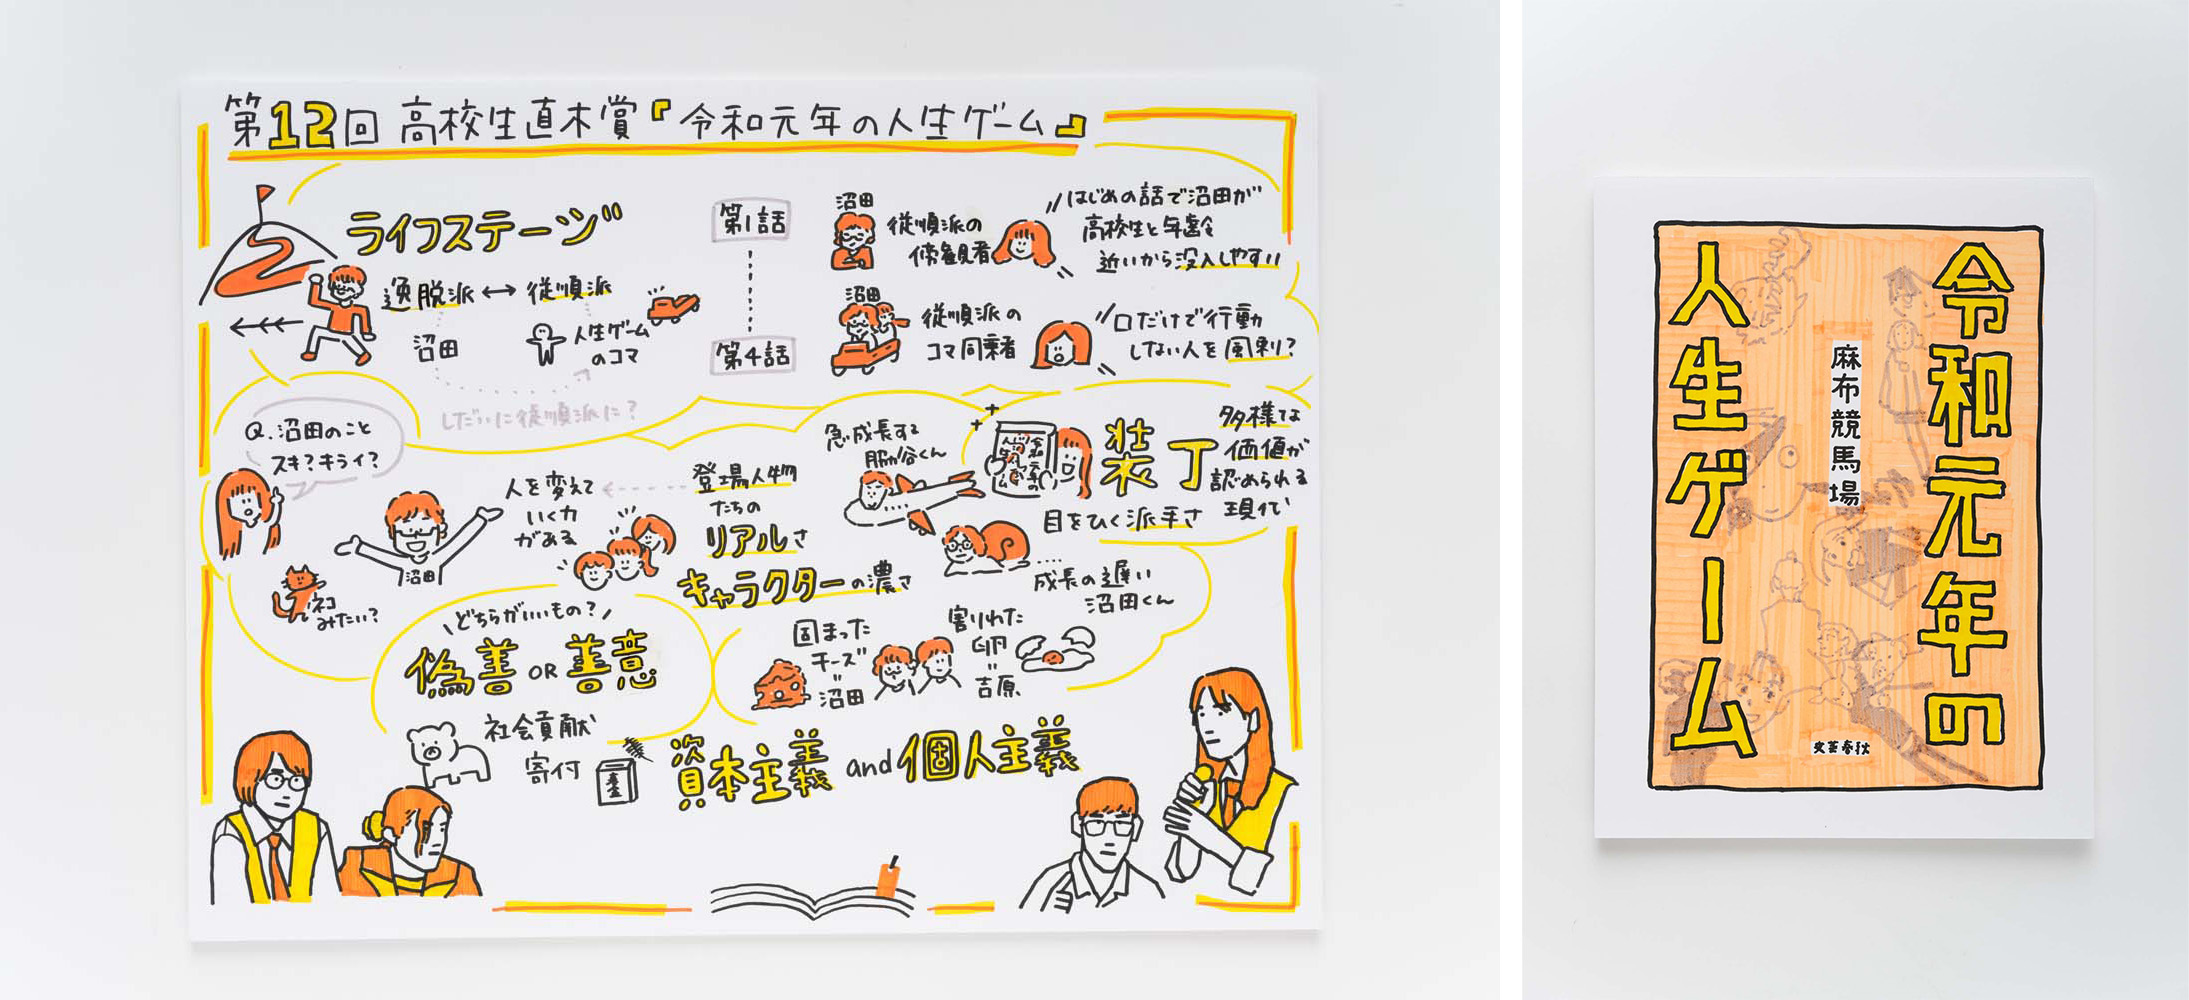 第12回 高校生直木賞『令和元年の人生ゲーム』
ライフステージ
逸脱派 ↔ 従順派
沼田
人生ゲーム
のコマ
しだいに従順派に?
第1話
第4話
沼田
従順派の
傍観者
はじめの話で沼田が
高校生と年齢
近いから没入しやすい
沼田
従順派の
コマ同乗者
口だけで行動
しない人を風刺?
Q.沼田のこと
スキ?キライ?
ネコ
みたい?
沼田
人を変えて
いく力
がある
登場人物
たちの
リアルさ
キャラクターの濃さ
急成長する
脇谷くん
装丁
多様な
価値が
認められる
現代
目をひく派手さ
成長の遅い
沼田くん
固まった
チーズ
=
沼田
割れた
卵
=
吉原
どちらがいいもの?
偽善 OR 善意
社会貢献
寄付
資本主義 and 個人主義
令和元年の
人生ゲーム
麻布競馬場
文芸春秋